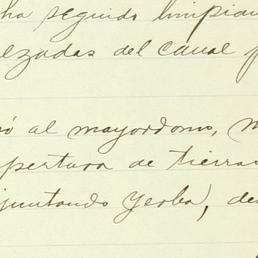 ha seguido limpian
alzadas del canal p
ó al mayordomo, M
pertura de tierra
juntando yerba, de